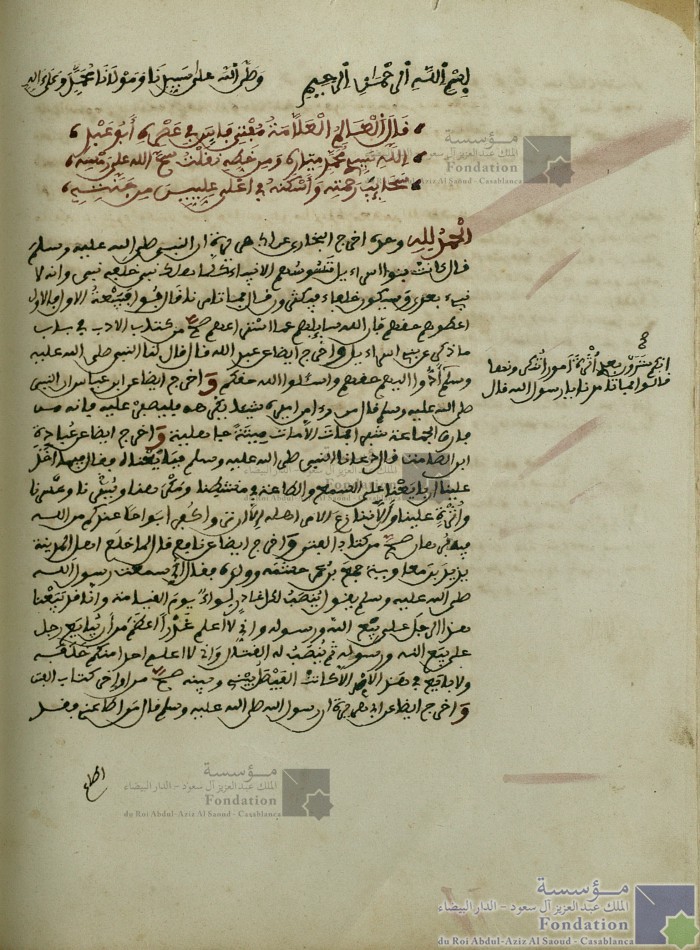 بسم الله الرحمن الرحيم وصلى الله على سيدنا ومولانا محمد وعلى ءاله
قال العالم العلامة مفتي فاس في عصره أبو عبد
الله سيدي محمد ميارة ومن خطه نقلت صح الله على رمسه
سحائب رحمته وأسكنه في أعلى عليين من جنته
الحمد لله وحده اخرج البخاري عن ابي هريرة ان النبي صلى الله عليه وسلم
قال كانت بنوا اسراءيل تسوسهم الانبياء كلما هلك نبي خلفه نبي وانه لا
نبيء بعدي وسيكون خلفاء فيكثرون قال فما تامرنا قال فوا ببيعة الاول فالاول
اعطوهم حقهم فان الله سايلهم عما استرعاهم صح من كتاب الادب في باب
ما ذكر عن بني اسراءيل واخرج ايضا عن عبد الله قال قال لنا النبي صلى الله عليه
وسلم
انكم سترون بعدي أثرة وأمورا تنكرونها
قالوا فما تامرنا يا رسول الله قال
أدوا اليهم حقهم واسئلوا الله حقكم واخرج ايضا عن ابن عباس ان النبي
صلى الله عليه وسلم قال من رءا من اميره شيئا يكرهه فليصبر عليه فانه من
فارق الجماعة شبرا فمات الا مات ميتة جاهلية واخرج ايضا عن عبادة
ابن الصامت قال دعانا النبي صلى الله عليه وسلم فبايعناه فقال فيما اخذ
علينا ان بايعنا على السمع والطاعة في منشطنا ومكرهنا وعسرنا
وأثرة علينا وألا ننازع الامر اهله إلا ان تروا كفرا بواحا عندكم من الله
فيه برهان صح من كتاب الفتن واخرج ايضا عن نافع قال لما خلع اهل المدينة
يزيد بن معاوية جمع بن عمر حشمه وولده فقال اني سمعت رسول الله
صلى الله عليه وسلم يقول ينصب لكل غادر لواء يوم القيامة وانا قد بايعنا
هذا الرجل على بيع الله ورسوله واني لا اعلم غدرا اعظم من أن يبايع رجل
على بيع الله ورسوله ثم ينصب له القتال واني لا اعلم احدا منكم خلعه
ولا بايع في هذا الامر الا كانت الفيصل بيني وبينه صح من اواخر كتاب الفتن
واخرج ايضا عن ابي هريرة ان رسول الله صلى الله عليه وسلم قال من اطاعني فقد
اطاع
مؤسسة
الملك عبد العزيز آل سعود - الدار البيضاء
Fondation
du Roi Abdul-Aziz Al Saoud - Casablanca